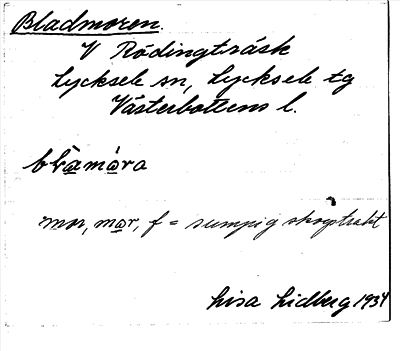 Bladmoren.
V Rödingträsk
Lycksele sn, Lycksele tg
Västerbottens l.
blamåra
mor, mor, f = sumpig skogstrakt
Lisa Lidberg 1934